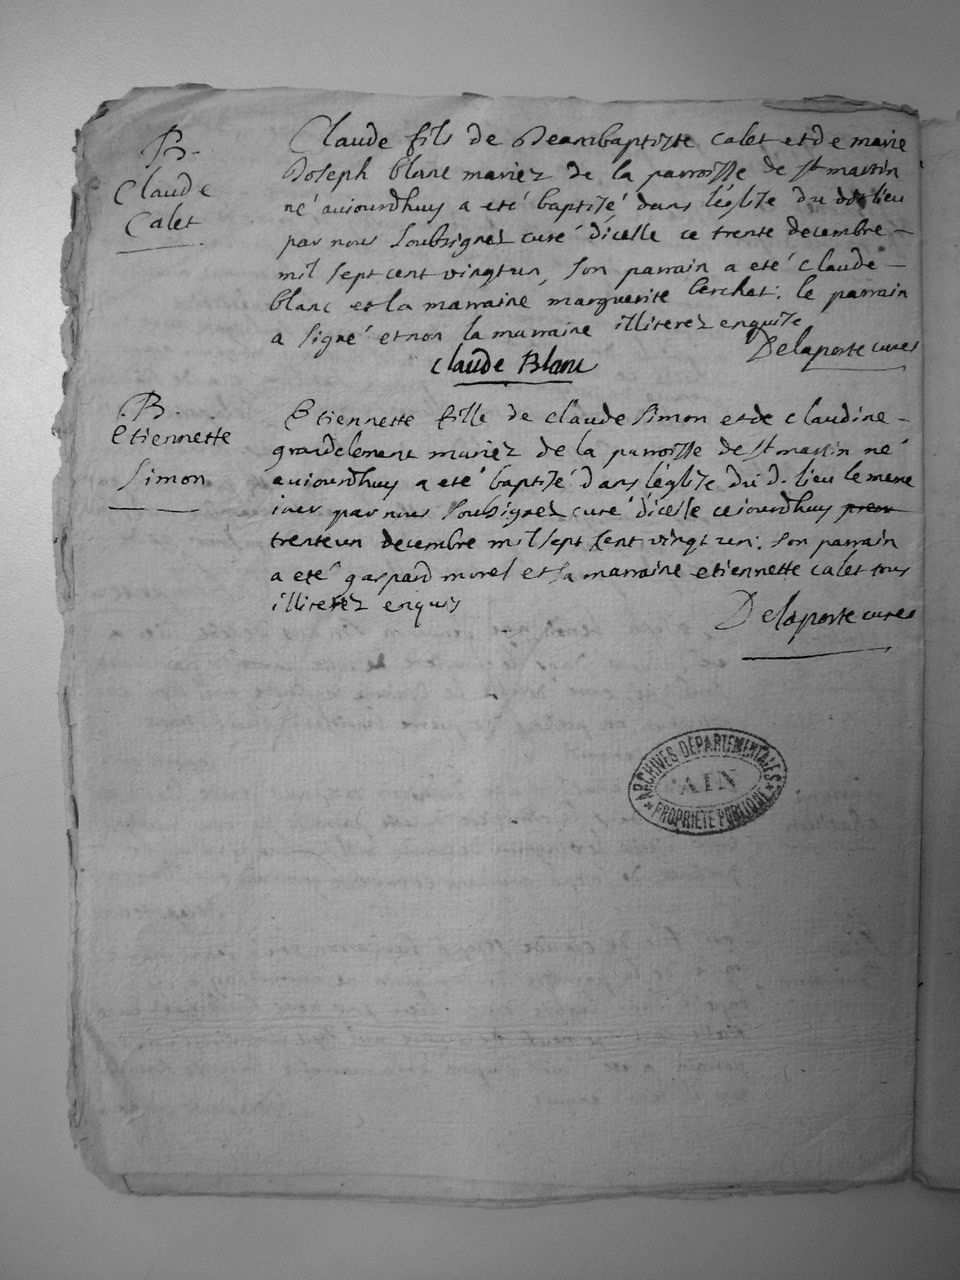 B.
Claude
Calet
Claude fils de Jeanbaptiste Calet et de marie
Joseph blanc mariez de la parroisse de st martin
né aujourdhuy a eté baptisé dans l'églize du dit lieu
par nous soubsignez curé d'icelle ce trente decembre
mil sept cent vingt un, son parrain a eté claude
blanc et la marraine marguerite berchet. le parrain
a signé et non la marraine illiterez enquise
Delaporte curez
claude Blanc
B.
etiennette
simon
Etiennette fille de claude simon et de claudine
grandclement mariez de la parroisse de st martin né
aujourdhuy a eté baptisé dans l'églize du d. lieu le meme
iour par nous soubsignez curé d'icelle cejourdhuy
trente un decembre mil sept cent vingt un. son parrain
a eté gaspard morel et sa marraine etiennette calet tous
illiterez enquis
Delaporte curez
ARCHIVES DÉPARTEMENTALES
AIN
PROPRIÉTÉ PUBLIQUE